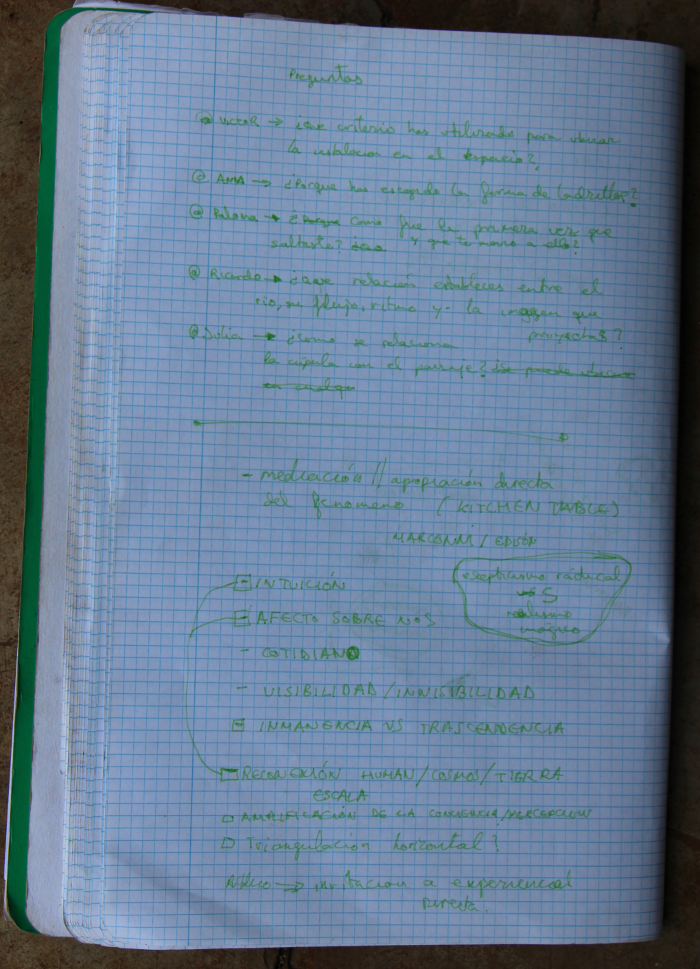 Preguntas
@ VICTOR → ¿Que criterio has utilizado para ubicar
la instalacion en el espacio?
@ ANA → ¿Porque has escogido la forma de ladrillos?
@ Paloma → ¿Porque como fue la primera vez que
saltaste? y que te movio a ello?
@ Ricardo → ¿que relación estableces entre el
rio, su flujo, ritmo y la imagen que
proyectas?
@ → ¿como se relaciona
la cúpula con el paisaje? ¿Se puede ubicar
en cualqu
- mediación // apropiación directa
del fenomeno (KITCHEN TABLE)
MARCONNI / EDISON
escepticismo radical
vs
realismo
magico
INTUICIÓN
AFECTO SOBRE NOS
- COTIDIANO
- VISIBILIDAD/INVISIBILIDAD
INMANENCIA VS TRASCENDENCIA
RECONEXIÓN HUMAN/COSMOS/TIERRA
ESCALA
AMPLIFICACIÓN DE LA CONCIENCIA/PERCEPCION
Triangulación horizontal?
→ invitacion a experiencia
directa.